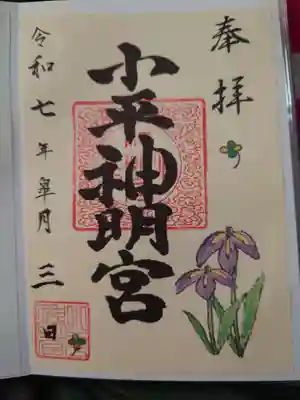 奉拝
小平神明宮
令和七年皐月三日